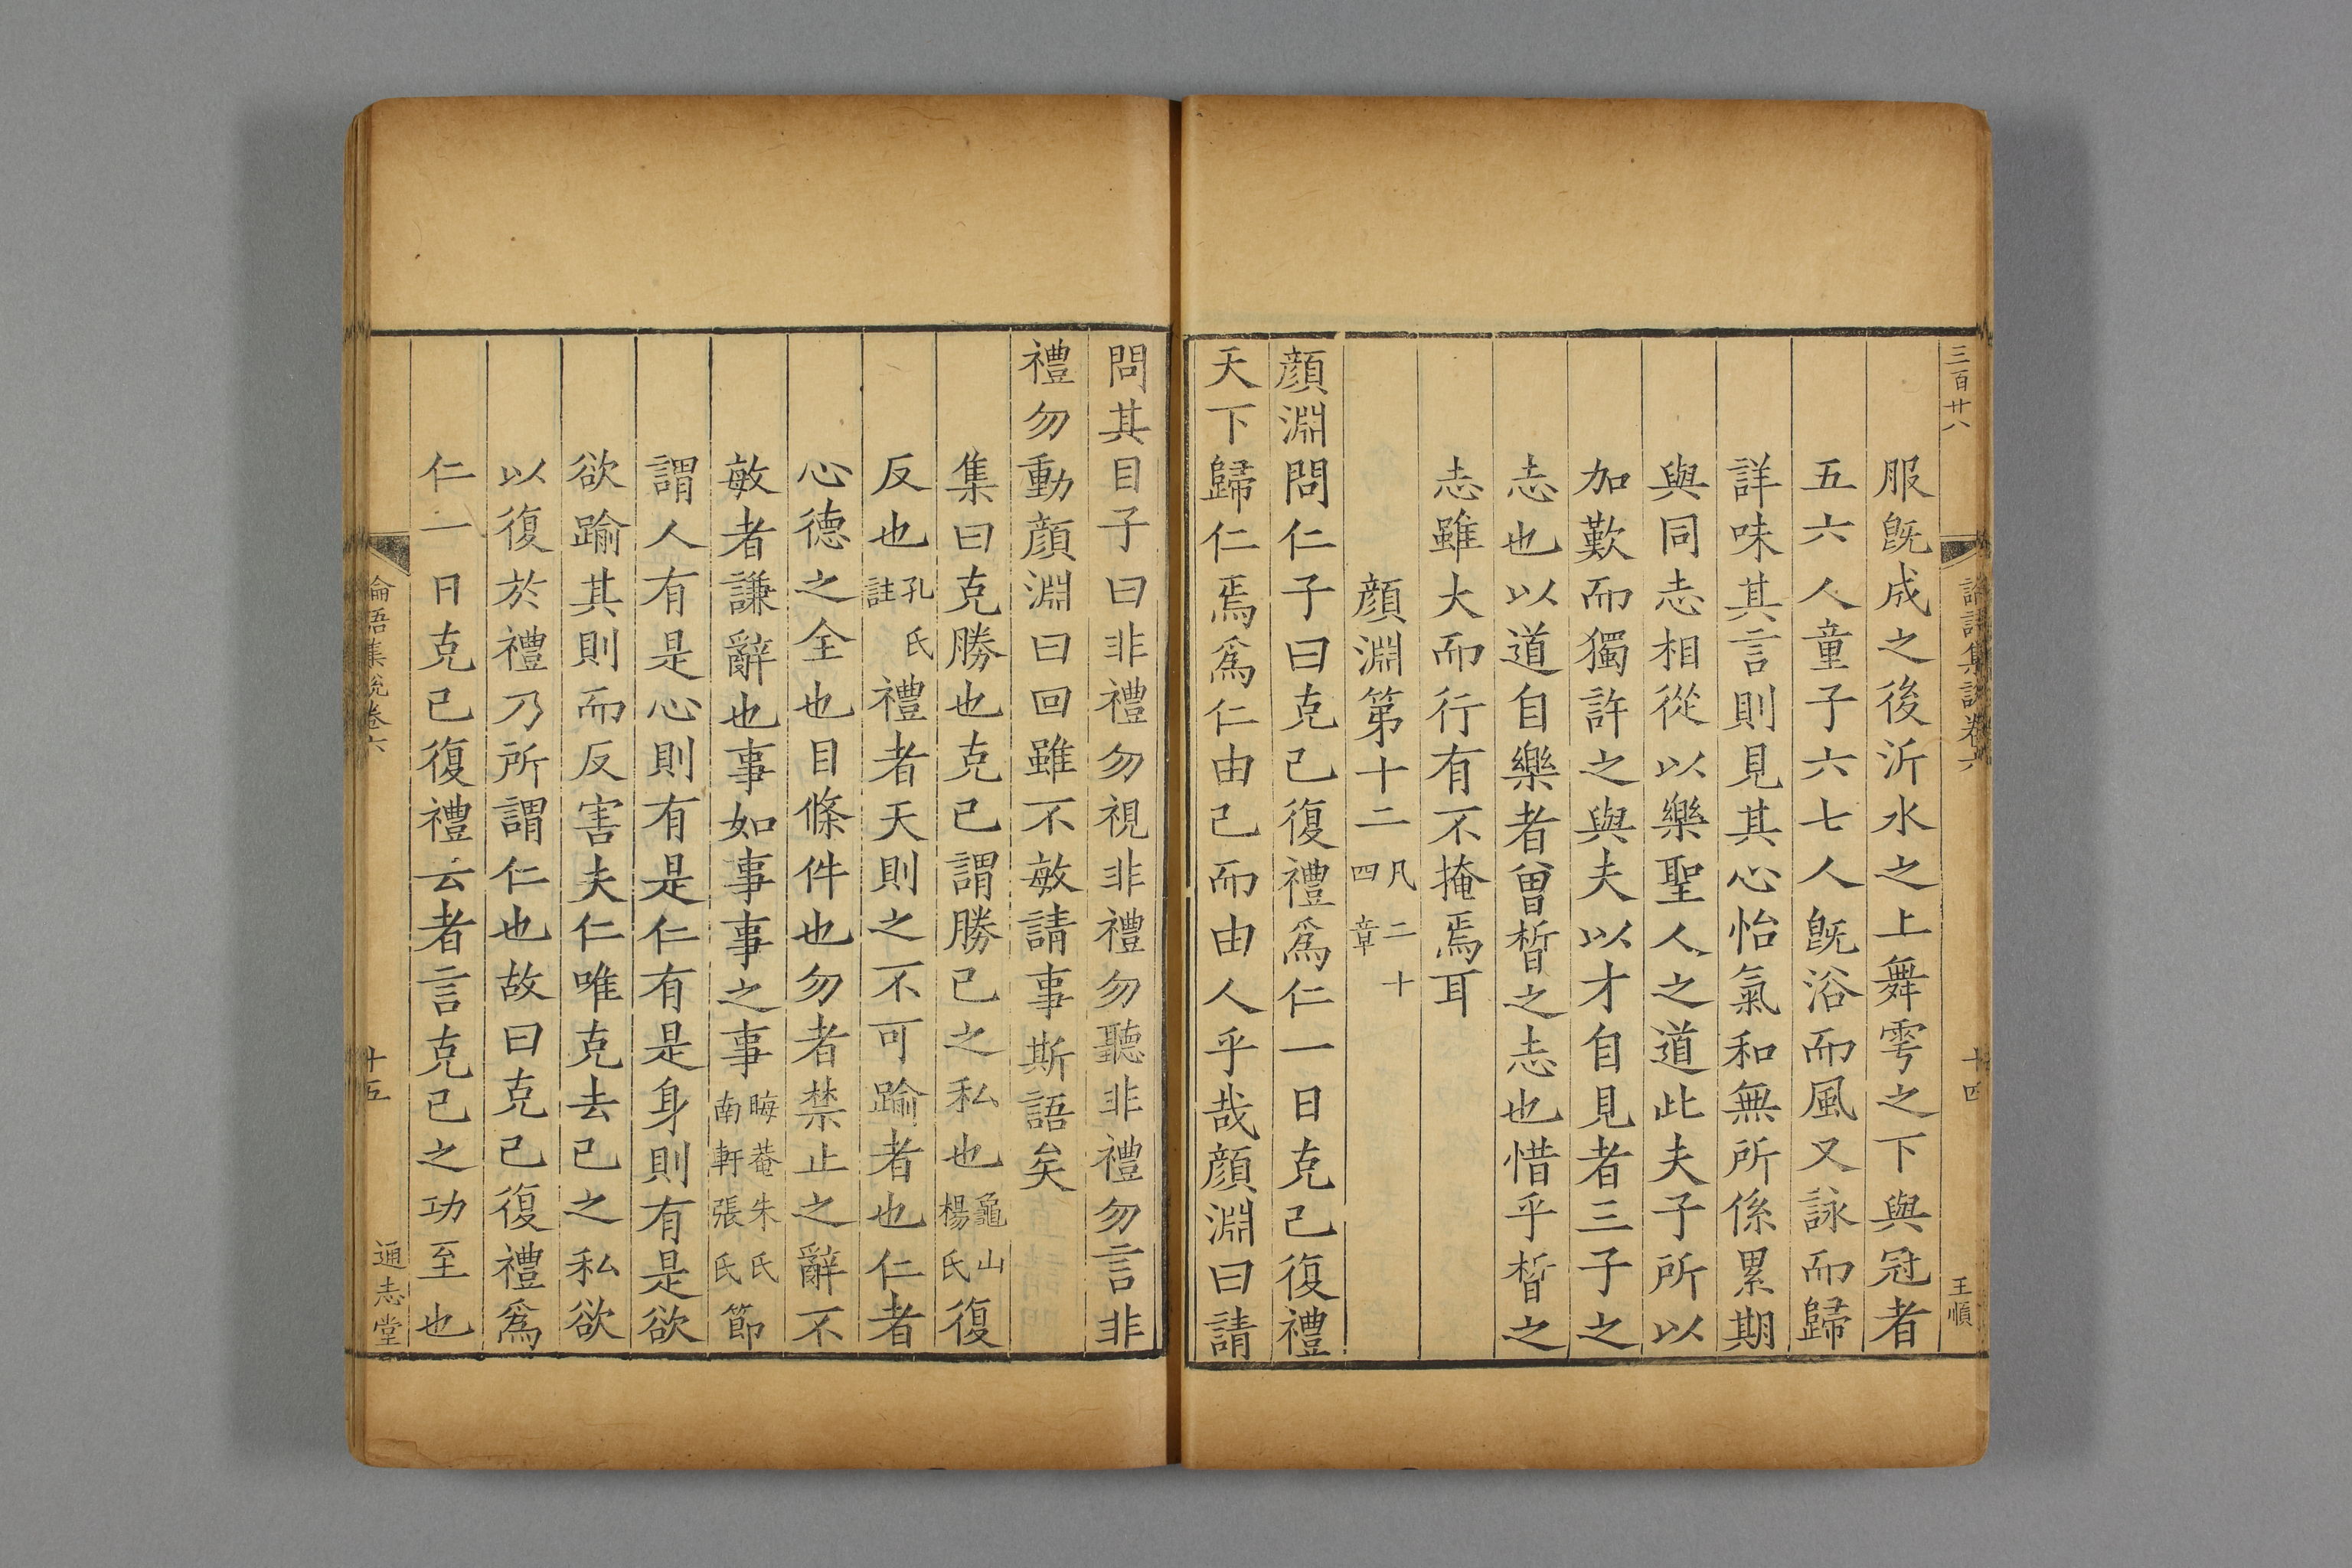 三百廿八
論語集說卷六
十四
王順
服旣成之後沂水之上舞雩之下與冠者
五六人童子六七人旣浴而風又詠而歸
詳味其言則見其心怡氣和無所係累期
與同志相從以樂聖人之道此夫子所以
加歎而獨許之與夫以才自見者三子之
志也以道自樂者曾晳之志也惜乎晳之
志雖大而行有不掩焉耳
顏淵第十二
凡二十
四章
顏淵問仁子曰克己復禮爲仁一日克己復禮
天下歸仁焉爲仁由己而由人乎哉顏淵曰請
問其目子曰非禮勿視非禮勿聽非禮勿言非
禮勿動顏淵曰回雖不敏請事斯語矣
集曰克勝也克己謂勝己之私也
龜山
楊氏
復
反也
孔氏
註
禮者天則之不可踰者也仁者
心德之全也目條件也勿者禁止之辭不
敏者謙辭也事如事事之事
晦菴朱氏
南軒張氏
節
謂人有是心則有是仁有是身則有是欲
欲踰其則而反害夫仁唯克去己之私欲
以復於禮乃所謂仁也故曰克己復禮爲
仁一日克己復禮云者言克己之功至也
論語集說卷六
十五
通志堂